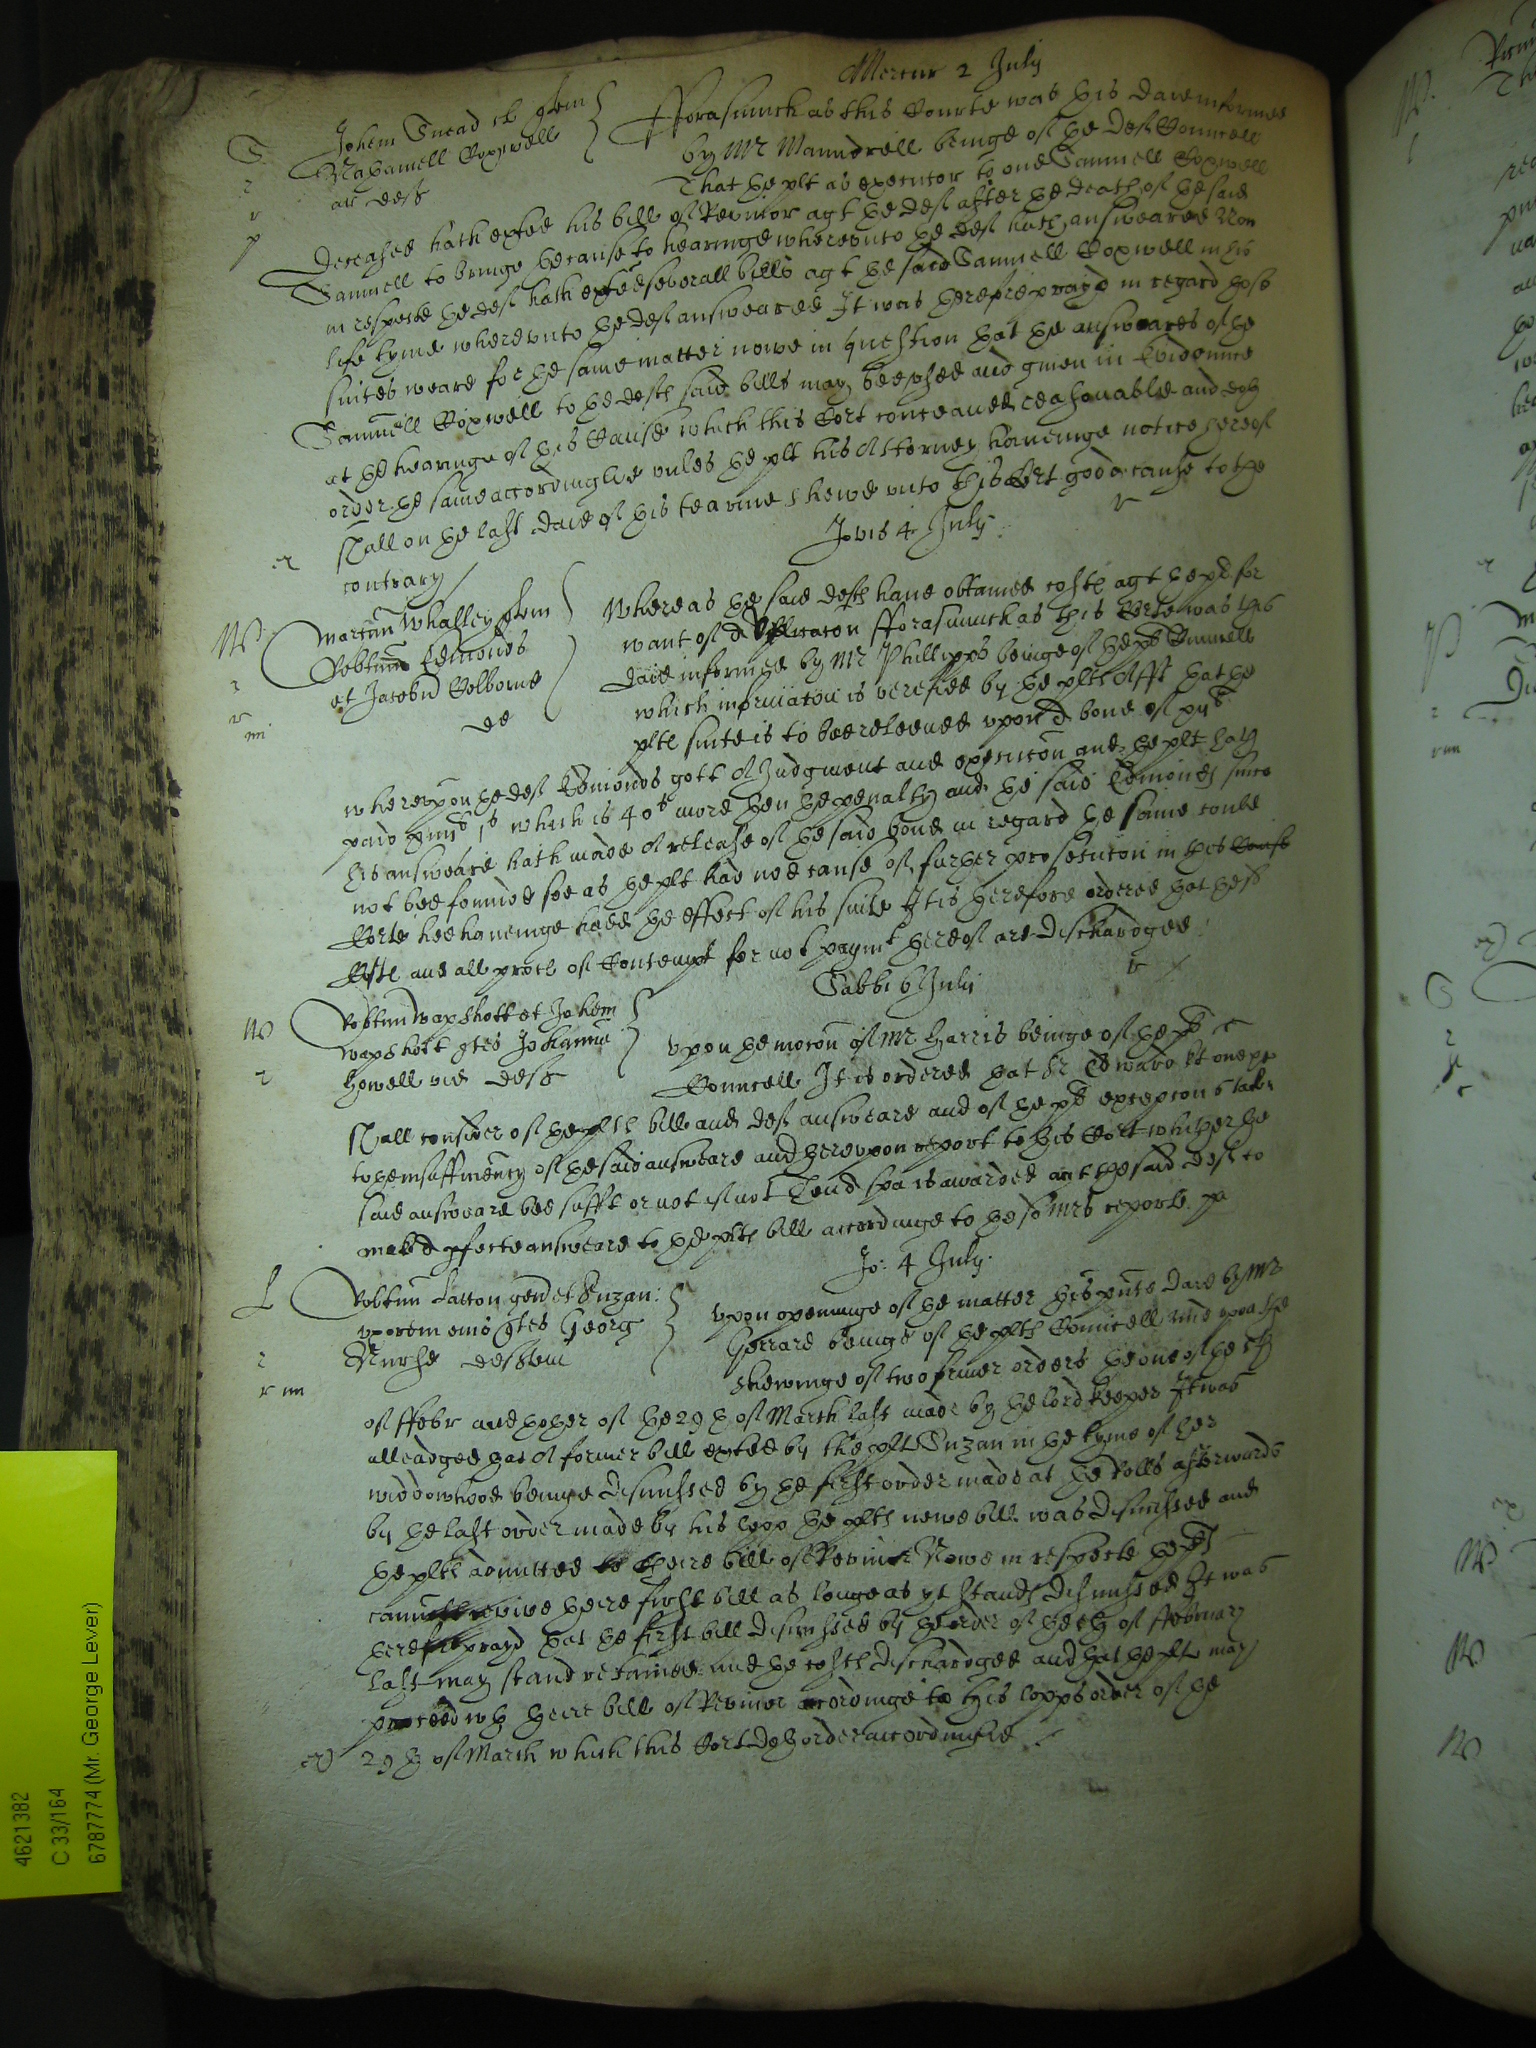 Mercur 2 July
S Johem Snead cl quem
Nathaniell Coxwell
ar deft
Fforasmuch as this Courte was this daie informed
by Mr Maundrell beinge of the deft Councell
That the plt as executor to one Samuell Coxwell
deceased hath exted his bill of Revivor agt the deft after the death of the said
Samuell to bringe the cause to hearinge wherevnto the deft hath answeared Now
in respecte the deft hath exted severall bills agt the said Samuell Coxwell in his
life tyme wherevnto the deft answeared It was therefore prayd in regard those
suites weare for the same matter nowe in question that the answeares of the
Samuell Coxwell to the defts said bills may bee vsed and given in Evidence
at the hearinge of this Cause which this Cort conceaved reasonable and doth
order the same accordinglie vnles the plt his Attorney haveinge notice thereof
shall on the last daie of this tearme shewe vnto this Cort good cause to the
contrary
Jovis 4 July
W Martin Whalley quem
Robtum Edmonds
et Jacobu Colborne
de
Whereas the said defts have obtained costs agt the plt for
want of Replicacon fforasmuch as this Corte was this
daie informed by Mr Phillipps beinge of the plts Councell
which informacon is verefied by the plts Afft that the
plts suite is to bee releeved vpon a bond of
wherevpon the deft Edmonds gott A Judgment and execucon and the plt hath
paid which is 40s more then the penalty and the said Edmonds since
his answeare hath made A release of the said bond in regard the same could
not bee founde soe as the plt had noe cause of further prosecucon in this Cause
Corte hee haveinge hadd the effect of his suite It is therefore ordered that the sd
Costs and all proces of Contempt for not paymt thereof are dischardged
Sabbi 6 July
W Robtum Wapshott et Johem
Wapshott qtes Johanna
Howell vid deft
Vpon the mocon of Mr Harris beinge of the plts
Councell It is ordered that Sr Edward
shall consider of the plts bill and deft answeare and of the plts excepcons taken
to the insufficiency of the said answeare and therevpon report to this Cort whither the
said answeare bee sufft or not if not Then spa is awarded agt the said deft to
make a pfecte answeare to the plts bill accordinge to the sd Mrs reporte
Jo: 4 July
L Robtum Latton gen et Suzan:
vxorem eius qtes Georg
Nurse deftem
Vpon openinge of the matter this pnte daie by Mr
Gerrard beinge of the plts Councell and vpon the
shewinge of two former orders the one of the
of Ffebr and thother of the 29th of March last made by the lord keeper It was
alleadged that A former bill exted by the plt Suzan in the tyme of her
widdowhood beinge dismissed by the first order made at the Rolls afterwards
by the last order made by his lopp the plts newe bill was dismissed and
the plts admitted to theire bill of Revivor Nowe in respecte the plts
cannott revive theire first bill as longe as yt stands dismissed It was
therefore prayd that the first bill dismissed by the order of the of Ffebruary
last may stand retained and the costs dischardged and that the plts may
proceed wth theire bill of Revivor accordinge to his lopps order of the
29th of March which this Cort doth order accordinglie
4621382
C 33/164
6787774 (Mr. George Lever)